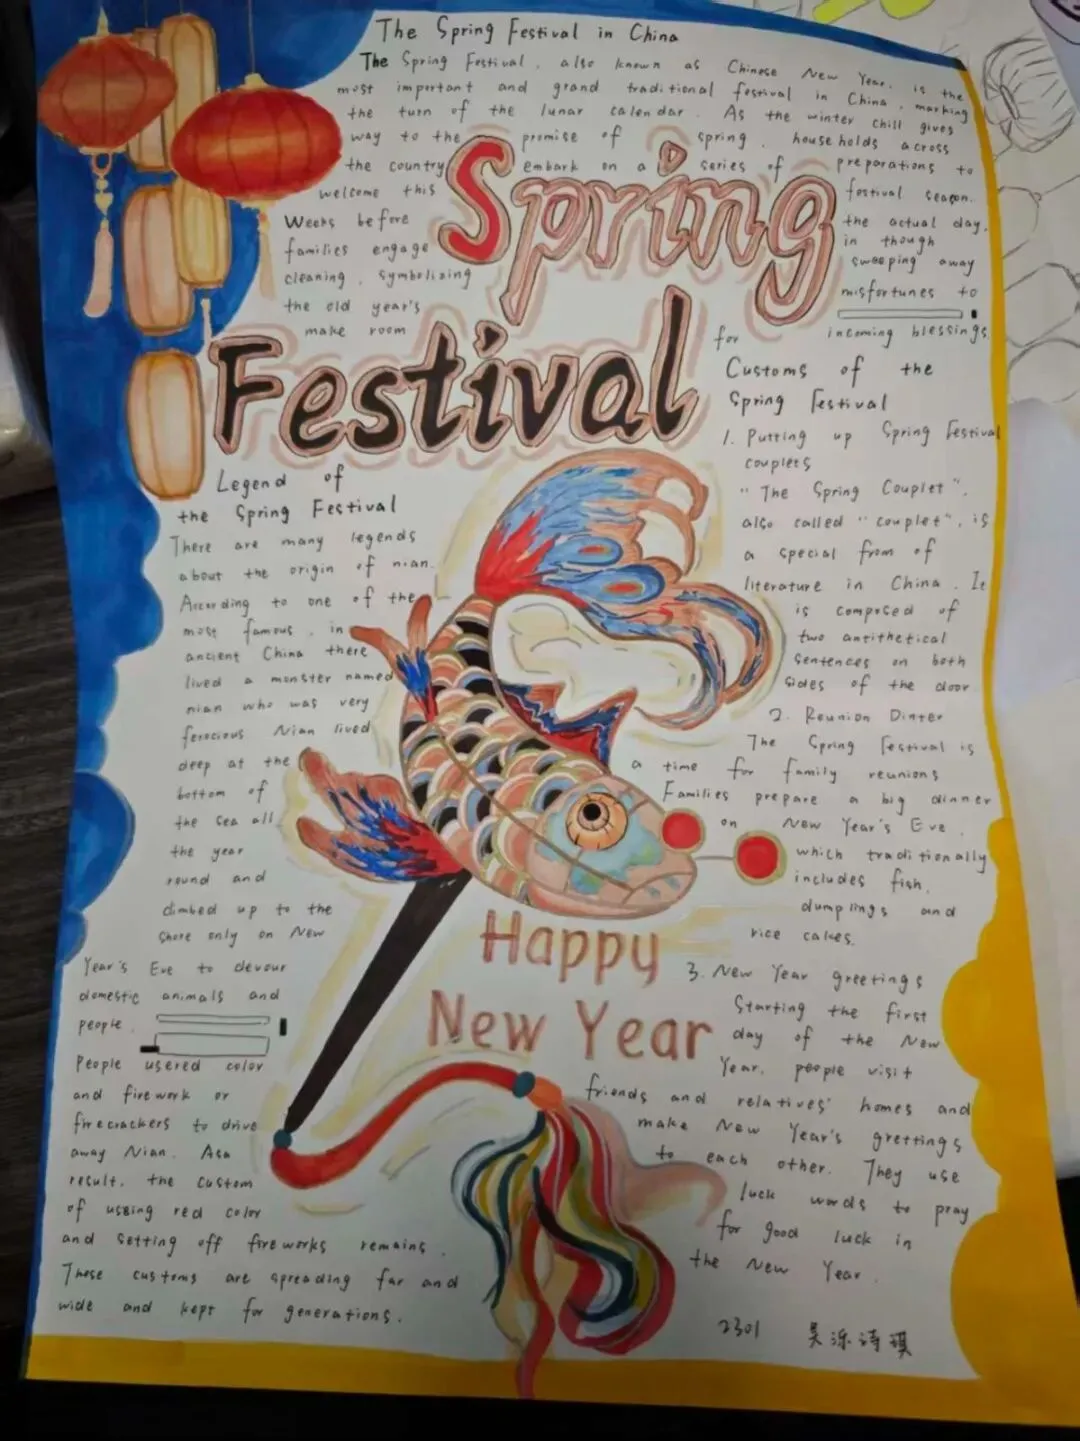 The Spring Festival in China
The Spring Festival, also known as Chinese New Year, is the
most important and grand traditional festival in China, marking
the turn of the lunar calendar. As the winter chill gives
way to the promise of spring, households across
the country embark on a series of preparations to
welcome this festival season.
Weeks before the actual day,
families engage in though
cleaning, symbolizing sweeping away
the old year's misfortunes to
make room for incoming blessings
Spring
Festival
Legend of
the Spring Festival
There are many legends
about the origin of nian.
According to one of the
most famous, in
ancient China there
lived a monster named
nian who was very
ferocious Nian lived
deep at the
bottom of
the sea all
the year
round and
climbed up to the
shore only on New
Year's Eve to devour
domestic animals and
people.
People usered color
and firework or
firecrackers to drive
away Nian. Asa
result, the custom
of using red color
and setting off fireworks remains.
These customs are spreading far and
wide and kept for generations.
Customs of the
Spring Festival
1. Putting up Spring Festival
couplets
"The Spring Couplet",
also called "couplet", is
a special from of
literature in China. It
is composed of
two antithetical
sentences on both
sides of the door
2. Reunion Dinter
The Spring Festival is
a time for family reunions
Families prepare a big dinner
on New Year's Eve,
which traditionally
includes fish,
dumplings and
rice cakes.
3. New Year greetings
Starting the first
day of the New
Year, people visit
friends and relatives' homes and
make New Year's grettings
to each other. They use
luck words to pray
for good luck in
the New Year.
Happy
New Year
2301 吴泺诗琪